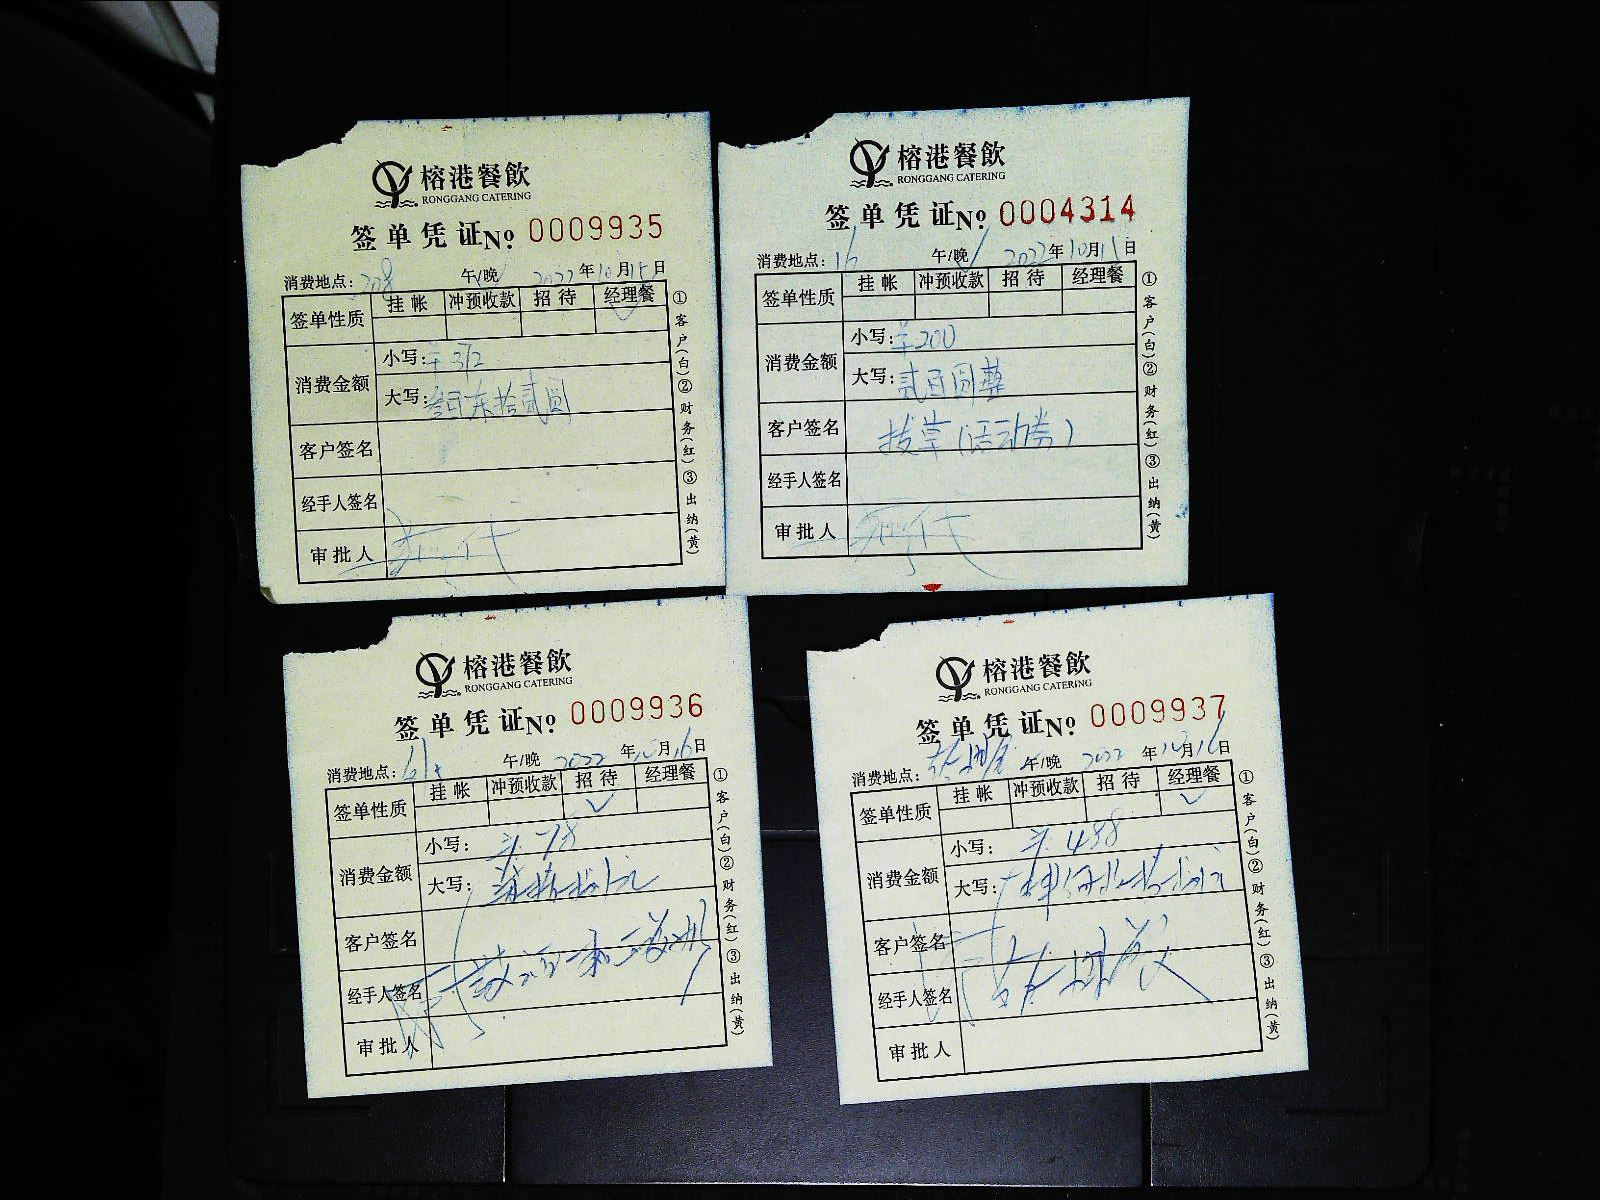 榕港餐飲
RONGGANG CATERING
签单凭证№ 0009935
消费地点：208 午/晚 2022年10月15日
签单性质 挂帐 冲预收款 招待 经理餐
消费金额 小写：¥372
大写：叁百柒拾贰圆
客户签名
经手人签名
审批人
①客户(白)②财务(红)③出纳(黄)
榕港餐飲
RONGGANG CATERING
签单凭证№ 0004314
消费地点：16 午/晚 2022年10月15日
签单性质 挂帐 冲预收款 招待 经理餐
消费金额 小写：¥200
大写：贰百圆整
客户签名 拔草(活动券)
经手人签名
审批人
①客户(白)②财务(红)③出纳(黄)
榕港餐飲
RONGGANG CATERING
签单凭证№ 0009936
消费地点： 午/晚 2022年10月16日
签单性质 挂帐 冲预收款 招待 经理餐
消费金额 小写：¥78
大写：
客户签名
经手人签名
审批人
①客户(白)②财务(红)③出纳(黄)
榕港餐飲
RONGGANG CATERING
签单凭证№ 0009937
消费地点： 午/晚 2022年10月16日
签单性质 挂帐 冲预收款 招待 经理餐
消费金额 小写：¥488
大写：
客户签名
经手人签名
审批人
①客户(白)②财务(红)③出纳(黄)